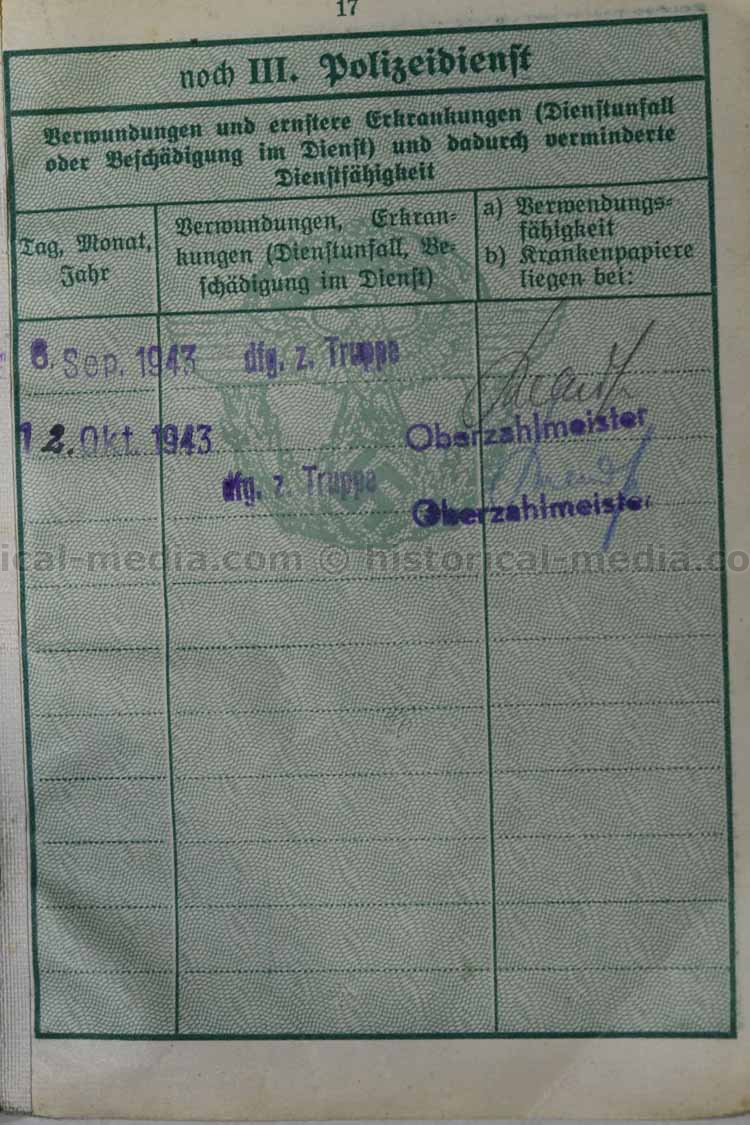 17
noch III. Polizeidienst
Verwundungen und ernstere Erkrankungen (Dienstunfall
oder Beschädigung im Dienst) und dadurch verminderte
Dienstfähigkeit
Tag, Monat,
Jahr
Verwundungen, Erkran-
kungen (Dienstunfall, Be-
schädigung im Dienst)
a) Verwendungs-
fähigkeit
b) Krankenpapiere
liegen bei:
6. Sep. 1943 dfg. z. Truppe
Oberzahlmeister
12. Okt. 1943
dfg. z. Truppe
Oberzahlmeister
ical-media.com © historical-media.co